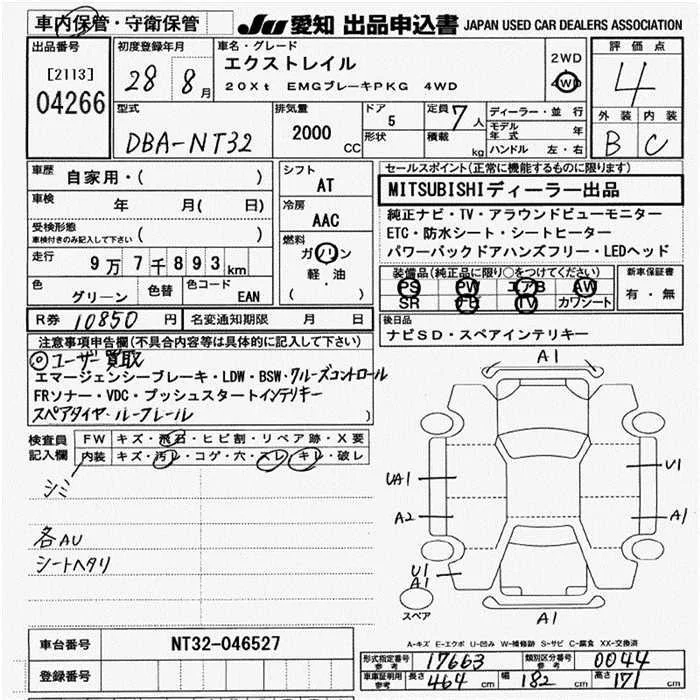 車内保管・守衛保管
JU 愛知 出品申込書 JAPAN USED CAR DEALERS ASSOCIATION
出品番号
[2113]
04266
初度登録年月
28 8月
車名・グレード
エクストレイル
20Xt EMGブレーキPKG 4WD
2WD
4WD
評価点
4
外装 内装
B C
型式
DBA-NT32
排気量
2000 CC
ドア
5
形状
定員 7人
積載 kg
ディーラー・並行
モデル年式 年
ハンドル 左・右
車歴 自家用・( )
車検 年 月( 日)
受検形態
車検付きのみ記入して下さい ( )
走行 9万7千893km
色 グリーン
色替
色コード EAN
シフト
AT
冷房
AAC
燃料
ガソリン
軽・油
( )
セールスポイント(正常に機能するものに限ります)
MITSUBISHIディーラー出品
純正ナビ・TV・アラウンドビューモニター
ETC・防水シート・シートヒーター
パワーバックドアハンズフリー・LEDヘッド
装備品(純正品に限り○をつけてください)
PS PW エアB AW
SR ナビ TV カワシート
新車保証書
有・無
R券 10850 円 名変通知期限 月 日
後日品
ナビSD・スペアインテリキー
注意事項申告欄(不具合内容等は具体的に記入して下さい)
◎ユーザー買取
エマージェンシーブレーキ・LDW・BSW・クルーズコントロール
FRソナー・VDC・プッシュスタートインテリキー
スペアタイヤ・ルーフレール
検査員記入欄
FW キズ・飛石・ヒビ割・リペア跡・X要
内装 キズ・汚レ・コゲ・穴・スレ・キレ・破レ
シミ
各AU
シートヘタリ
A1
UA1
U1
A2
A1
U1
A1
A1
スペア
A-キズ E-エクボ U-凹み W-補修跡 S-サビ C-腐食 XX-交換済
車台番号 NT32-046527
登録番号
形式指定番号 参考 17663
類別区分番号 参考 0044
車庫証明用 参考 長さ 464 cm 幅 182 cm 高さ 171 cm